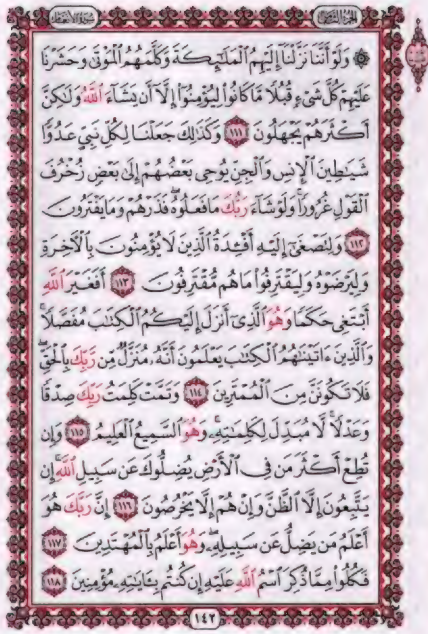 الجزء الثامن
سورة الأنعام
۞ وَلَوْ أَنَّنَا نَزَّلْنَا إِلَيْهِمُ الْمَلَٰٓئِكَةَ وَكَلَّمَهُمُ الْمَوْتَىٰ وَحَشَرْنَا
عَلَيْهِمْ كُلَّ شَيْءٍ قُبُلًا مَّا كَانُوا لِيُؤْمِنُوٓا إِلَّآ أَن يَشَآءَ اللَّهُ وَلَٰكِنَّ
أَكْثَرَهُمْ يَجْهَلُونَ ١١١ وَكَذَٰلِكَ جَعَلْنَا لِكُلِّ نَبِيٍّ عَدُوًّا
شَيَٰطِينَ الْإِنسِ وَالْجِنِّ يُوحِي بَعْضُهُمْ إِلَىٰ بَعْضٍ زُخْرُفَ
الْقَوْلِ غُرُورًا وَلَوْ شَآءَ رَبُّكَ مَا فَعَلُوهُ فَذَرْهُمْ وَمَا يَفْتَرُونَ
١١٢ وَلِتَصْغَىٰٓ إِلَيْهِ أَفْـِٔدَةُ الَّذِينَ لَا يُؤْمِنُونَ بِالْءَاخِرَةِ
وَلِيَرْضَوْهُ وَلِيَقْتَرِفُوا مَا هُم مُّقْتَرِفُونَ ١١٣ أَفَغَيْرَ اللَّهِ
أَبْتَغِي حَكَمًا وَهُوَ الَّذِيٓ أَنزَلَ إِلَيْكُمُ الْكِتَٰبَ مُفَصَّلًا
وَالَّذِينَ ءَاتَيْنَٰهُمُ الْكِتَٰبَ يَعْلَمُونَ أَنَّهُۥ مُنَزَّلٌ مِّن رَّبِّكَ بِالْحَقِّ
فَلَا تَكُونَنَّ مِنَ الْمُمْتَرِينَ ١١٤ وَتَمَّتْ كَلِمَتُ رَبِّكَ صِدْقًا
وَعَدْلًا لَّا مُبَدِّلَ لِكَلِمَٰتِهِۦ وَهُوَ السَّمِيعُ الْعَلِيمُ ١١٥ وَإِن
تُطِعْ أَكْثَرَ مَن فِي الْأَرْضِ يُضِلُّوكَ عَن سَبِيلِ اللَّهِ إِن
يَتَّبِعُونَ إِلَّا الظَّنَّ وَإِنْ هُمْ إِلَّا يَخْرُصُونَ ١١٦ إِنَّ رَبَّكَ هُوَ
أَعْلَمُ مَن يَضِلُّ عَن سَبِيلِهِۦ وَهُوَ أَعْلَمُ بِالْمُهْتَدِينَ ١١٧
فَكُلُوا مِمَّا ذُكِرَ اسْمُ اللَّهِ عَلَيْهِ إِن كُنتُم بِـَٔايَٰتِهِۦ مُؤْمِنِينَ ١١٨
١٤٢